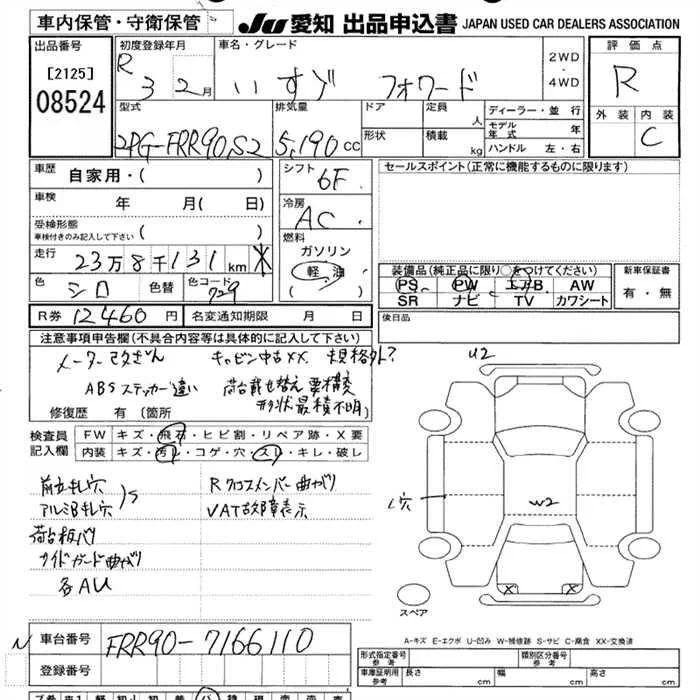 車内保管・守衛保管
JU 愛知 出品申込書 JAPAN USED CAR DEALERS ASSOCIATION
出品番号
[2125]
08524
初度登録年月
R 3 2月
車名・グレード
いすゞ フォワード
2WD
・
4WD
評価点
R
外装 内装
C
型式
2PG-FRR90S2
排気量
5,190 cc
ドア
形状
定員 人
積載 kg
ディーラー・並行
モデル年式 年
ハンドル 左・右
車歴
自家用・( )
車検 年 月( 日)
受検形態
車検付きのみ記入して下さい
走行 23万8千131km
色 シロ 色替 色コード 729
シフト 6F
冷房 AC
燃料
ガソリン
軽油
( ・ )
セールスポイント(正常に機能するものに限ります)
装備品(純正品に限り○をつけてください)
PS PW エアB AW
SR ナビ TV カワシート
新車保証書
有・無
R券 12460 円
名変通知期限 月 日
後日品
注意事項申告欄(不具合内容等は具体的に記入して下さい)
メーター
キャビン中古XX 規格外?
ABSステッカー違い
荷台載せ替え
形状最積不明)
修復歴 有 (箇所
検査員記入欄
FW キズ・飛石・ヒビ割・リペア跡・X要
内装 キズ・汚レ・コゲ・穴・スレ・キレ・破レ
アルミB
Rクロスメンバー曲がり
VAT故障表示
サイドガード曲がり
各AU
U2
W2
穴
X X
スペア
A-キズ E-エクボ U-凹み W-補修跡 S-サビ C-腐食 XX-交換済
車台番号 FRR90-7166110
登録番号
N
形式指定番号
参考
類別区分番号
参考
車庫証明用
参考
長さ cm
幅 cm
高さ cm